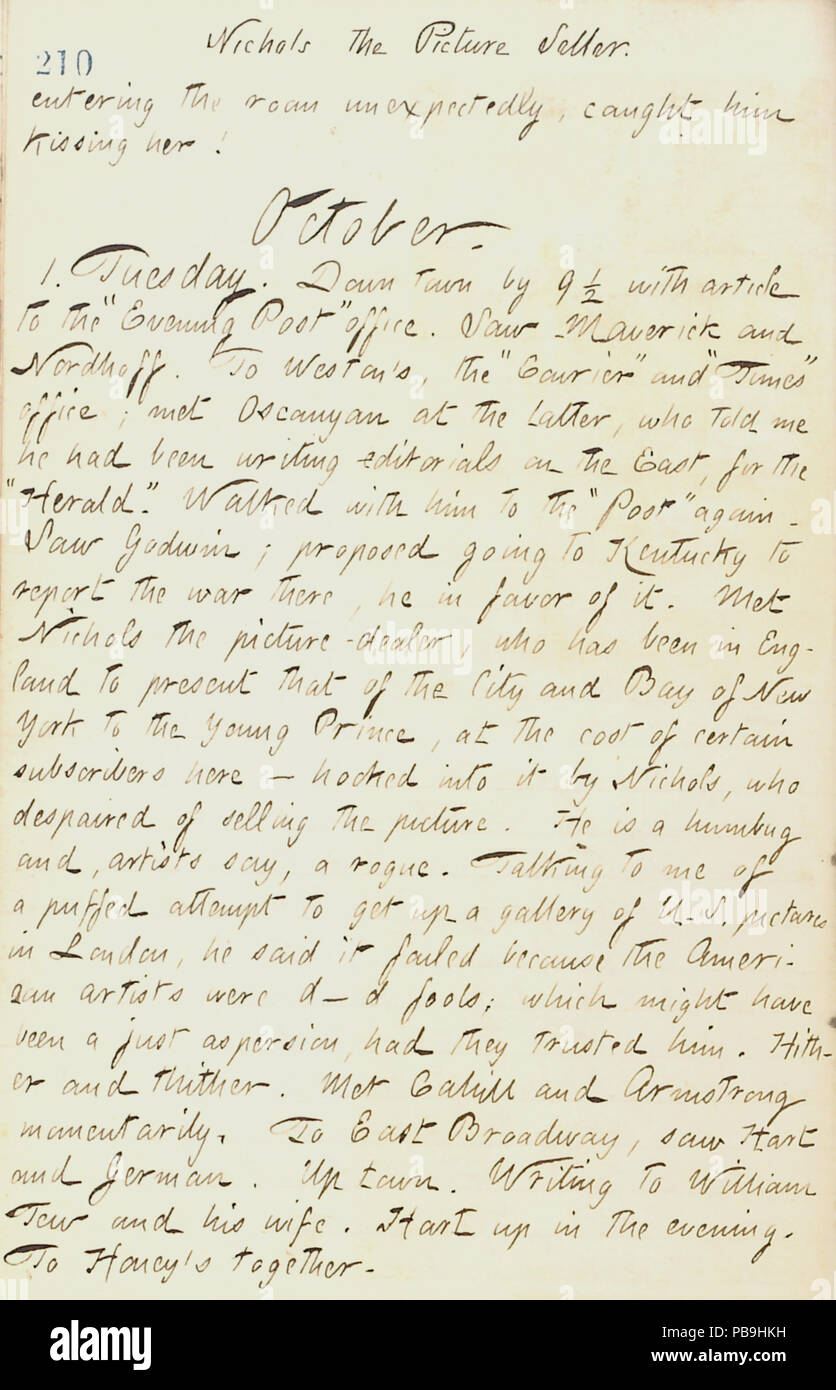 Nichols the Picture Seller.
210
entering the room unexpectedly, caught him
kissing her!
October.
1. Tuesday. Down town by 9 ½ with article
to the "Evening Post" office. Saw Maverick and
Nordhoff. To Weston's, the "Courier" and "Times"
office; met Oscanyan at the latter, who told me
he had been writing editorials on the East, for the
"Herald." Walked with him to the "Post" again.
Saw Godwin; proposed going to Kentucky to
report the war there, he in favor of it. Met
Nichols the picture-dealer, who has been in Eng-
land to present that of the City and Bay of New
York to the Young Prince, at the cost of certain
subscribers here — hooked into it by Nichols, who
despaired of selling the picture. He is a humbug
and, artists say, a rogue. Talking to me of
a puffed attempt to get up a gallery of U.S. pictures
in London, he said it failed because the Ameri-
can artists were d—d fools; which might have
been a just aspersion, had they trusted him. Hith-
er and thither. Met Cahill and Armstrong
momentarily. To East Broadway, saw Hart
and German. Up town. Writing to William
Tew and his wife. Hart up in the evening.
To Honey's together.
alamy
alamy
alamy
alamy
a
alamy
Image ID: PB9HKH
www.alamy.com